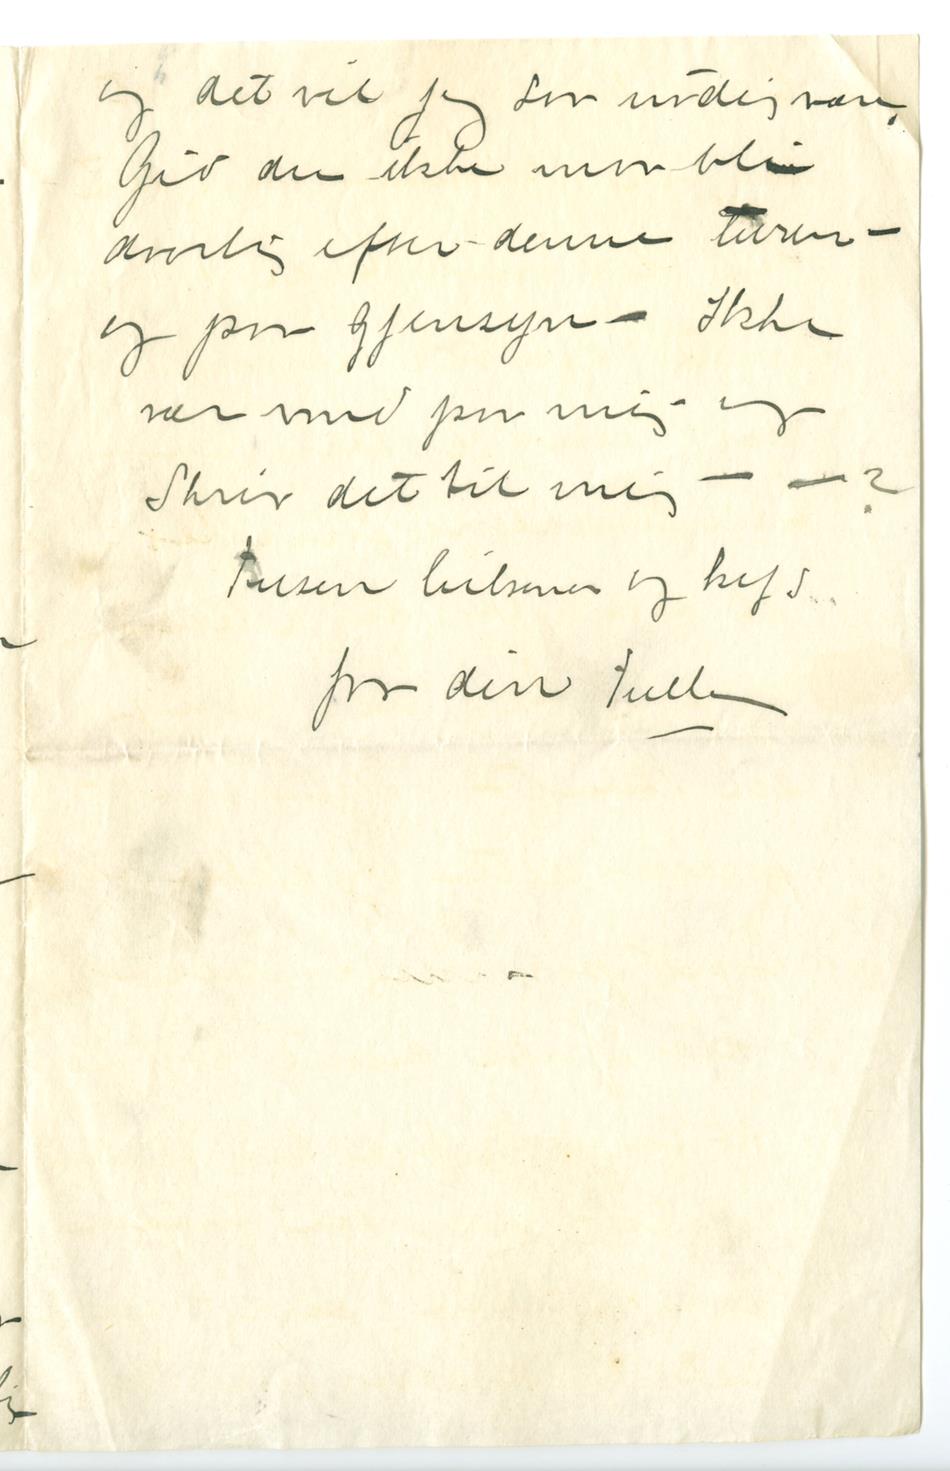 og det vil jeg saa nødig være.
Gid du ikke maa bli
daarlig efter denne turen –
og paa gjensyn – Ikke
vær vond paa mig og
Skriv det til mig – – ?
Tusen hilsener og kys
fra din Tulla